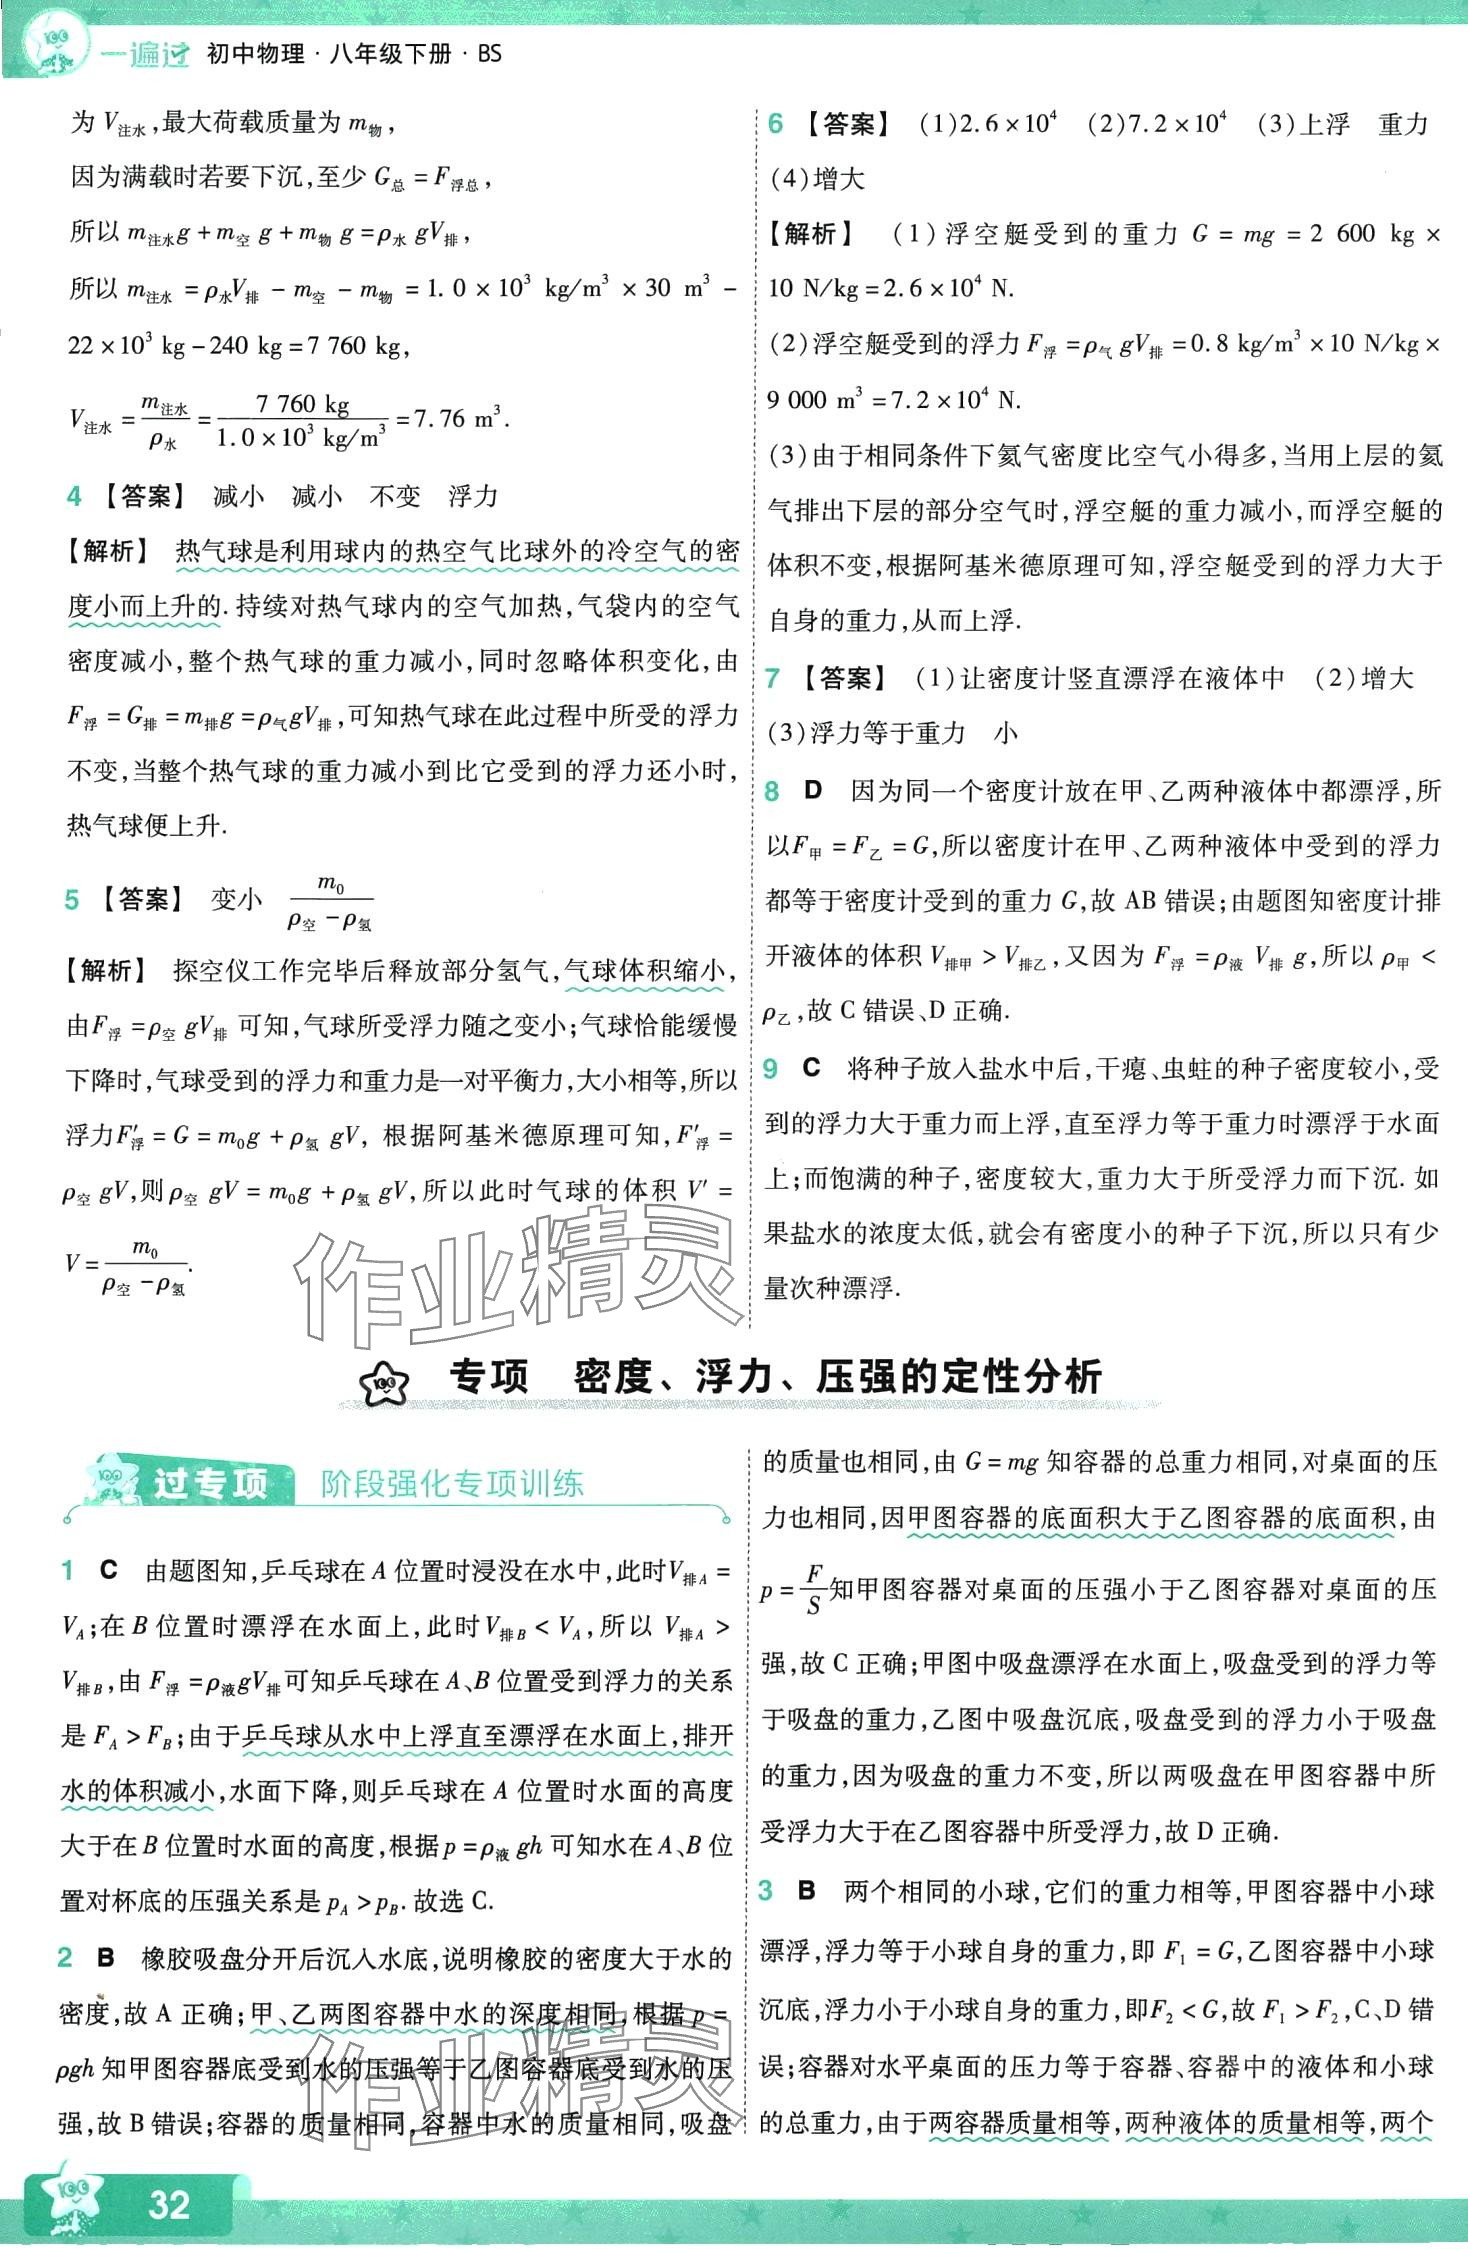 一遍过 初中物理·八年级下册·BS
为 V注水,最大荷载质量为 m物,
因为满载时若要下沉,至少 G总 = F浮总,
所以 m注水g + m空 g + m物 g = ρ水 gV排,
所以 m注水 = ρ水V排 - m空 - m物 = 1.0 × 10³ kg/m³ × 30 m³ -
22 × 10³ kg - 240 kg = 7 760 kg,
V注水 = m注水/ρ水 = 7 760 kg/1.0 × 10³ kg/m³ = 7.76 m³.
4 【答案】 减小 减小 不变 浮力
【解析】 热气球是利用球内的热空气比球外的冷空气的密
度小而上升的. 持续对热气球内的空气加热,气袋内的空气
密度减小,整个热气球的重力减小,同时忽略体积变化,由
F浮 = G排 = m排g = ρ气gV排,可知热气球在此过程中所受的浮力
不变,当整个热气球的重力减小到比它受到的浮力还小时,
热气球便上升.
5 【答案】 变小 m₀/ρ空 - ρ氢
【解析】 探空仪工作完毕后释放部分氢气,气球体积缩小,
由F浮 = ρ空 gV排 可知,气球所受浮力随之变小;气球恰能缓慢
下降时,气球受到的浮力和重力是一对平衡力,大小相等,所以
浮力F′浮 = G = m₀g + ρ氢 gV, 根据阿基米德原理可知,F′浮 =
ρ空 gV,则 ρ空 gV = m₀g + ρ氢 gV,所以此时气球的体积 V′ =
V = m₀/ρ空 - ρ氢.
6 【答案】 (1)2.6 × 10⁴ (2)7.2 × 10⁴ (3)上浮 重力
(4)增大
【解析】 (1)浮空艇受到的重力 G = mg = 2 600 kg ×
10 N/kg = 2.6 × 10⁴ N.
(2)浮空艇受到的浮力 F浮 = ρ气 gV排 = 0.8 kg/m³ × 10 N/kg ×
9 000 m³ = 7.2 × 10⁴ N.
(3)由于相同条件下氦气密度比空气小得多,当用上层的氦
气排出下层的部分空气时,浮空艇的重力减小,而浮空艇的
体积不变,根据阿基米德原理可知,浮空艇受到的浮力大于
自身的重力,从而上浮.
7 【答案】 (1)让密度计竖直漂浮在液体中 (2)增大
(3)浮力等于重力 小
8 D 因为同一个密度计放在甲、乙两种液体中都漂浮,所
以F甲 = F乙 = G,所以密度计在甲、乙两种液体中受到的浮力
都等于密度计受到的重力 G,故 AB 错误;由题图知密度计排
开液体的体积 V排甲 > V排乙,又因为 F浮 = ρ液 V排 g,所以 ρ甲 <
ρ乙,故 C 错误、D 正确.
9 C 将种子放入盐水中后,干瘪、虫蛀的种子密度较小,受
到的浮力大于重力而上浮,直至浮力等于重力时漂浮于水面
上;而饱满的种子,密度较大,重力大于所受浮力而下沉. 如
果盐水的浓度太低,就会有密度小的种子下沉,所以只有少
量次种漂浮.
作业精灵
专项 密度、浮力、压强的定性分析
过专项 阶段强化专项训练
1 C 由题图知,乒乓球在 A 位置时浸没在水中,此时V排A =
VA;在 B 位置时漂浮在水面上,此时 V排B < VA,所以 V排A >
V排B,由 F浮 = ρ液gV排可知乒乓球在 A、B 位置受到浮力的关系
是 FA > FB;由于乒乓球从水中上浮直至漂浮在水面上,排开
水的体积减小,水面下降,则乒乓球在 A 位置时水面的高度
大于在 B 位置时水面的高度,根据 p = ρ液 gh 可知水在A、B 位
置对杯底的压强关系是 pA > pB. 故选 C.
2 B 橡胶吸盘分开后沉入水底,说明橡胶的密度大于水的
密度,故 A 正确;甲、乙两图容器中水的深度相同,根据 p =
ρgh 知甲图容器底受到水的压强等于乙图容器底受到水的压
强,故 B 错误;容器的质量相同,容器中水的质量相同,吸盘
的质量也相同,由 G = mg 知容器的总重力相同,对桌面的压
力也相同,因甲图容器的底面积大于乙图容器的底面积,由
p = F/S 知甲图容器对桌面的压强小于乙图容器对桌面的压
强,故 C 正确;甲图中吸盘漂浮在水面上,吸盘受到的浮力等
于吸盘的重力,乙图中吸盘沉底,吸盘受到的浮力小于吸盘
的重力,因为吸盘的重力不变,所以两吸盘在甲图容器中所
受浮力大于在乙图容器中所受浮力,故 D 正确.
3 B 两个相同的小球,它们的重力相等,甲图容器中小球
漂浮,浮力等于小球自身的重力,即 F₁ = G,乙图容器中小球
沉底,浮力小于小球自身的重力,即F₂ < G,故 F₁ > F₂,C、D 错
误;容器对水平桌面的压力等于容器、容器中的液体和小球
的总重力,由于两容器质量相等,两种液体的质量相等,两个
作业精灵
32